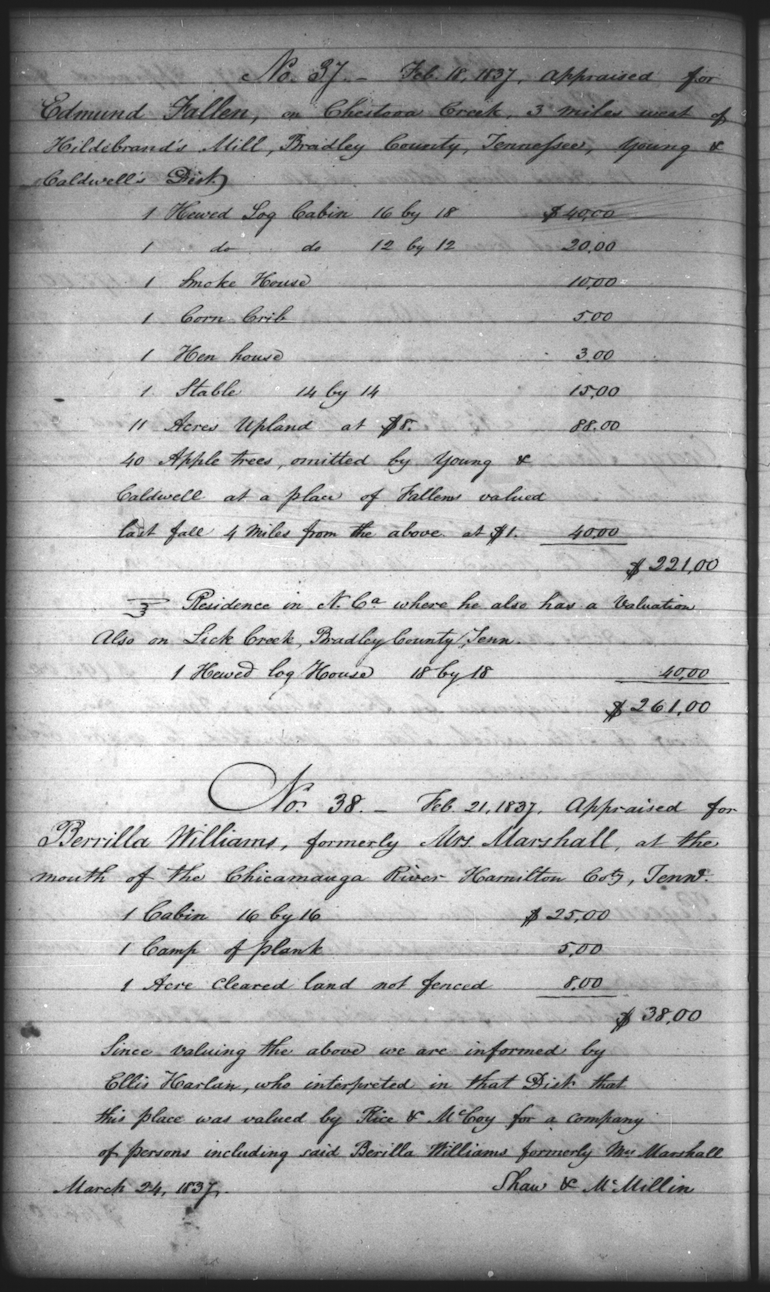 No. 37. – Feb. 18, 1837, Appraised for
Edmund Fallen, on Chestova Creek, 3 miles west of
Hildebrand's Mill, Bradley County, Tennessee, Young &
Caldwell's Dist.)
1 Hewed Log Cabin 16 by 18 $40,00
1 do do 12 by 12 20.00
1 Smoke House 10,00
1 Corn Crib 5,00
1 Hen house 3,00
1 Stable 14 by 14 15,00
11 Acres Upland at $8. 88.00
40 Apple trees, omitted by Young &
Caldwell at a place of Fallens valued
last fall 4 Miles from the above at $1. 40,00
$221,00
Residence in N. Ca where he also has a Valuation
Also on Lick Creek, Bradley County, Tenn.
1 Hewed log House 18 by 18 40,00
$261,00
No. 38. – Feb. 21, 1837, Appraised for
Berrilla Williams, formerly Mrs. Marshall, at the
mouth of the Chicamauga River Hamilton Coty, Tenne.
1 Cabin 16 by 16 $25,00
1 Camp of plank 5,00
1 Acre cleared land not fenced 8,00
$38,00
Since valuing the above we are informed by
Ellis Harlan, who interpreted in that Dist. that
this place was valued by Rice & McCoy for a company
of persons including said Berilla Williams formerly Mrs Marshall
March 24, 1837. Shaw & McMillin